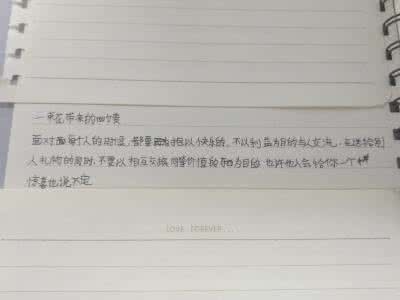 一束花带来的回馈
面对每个人的时候,都要抱以快乐的,不以利益为目的与人交流,在送给别
人礼物的时候,不要以相互交换同等价值的为目的,也许他人会给你一个
惊喜也说不定
LOVE FOREVER...